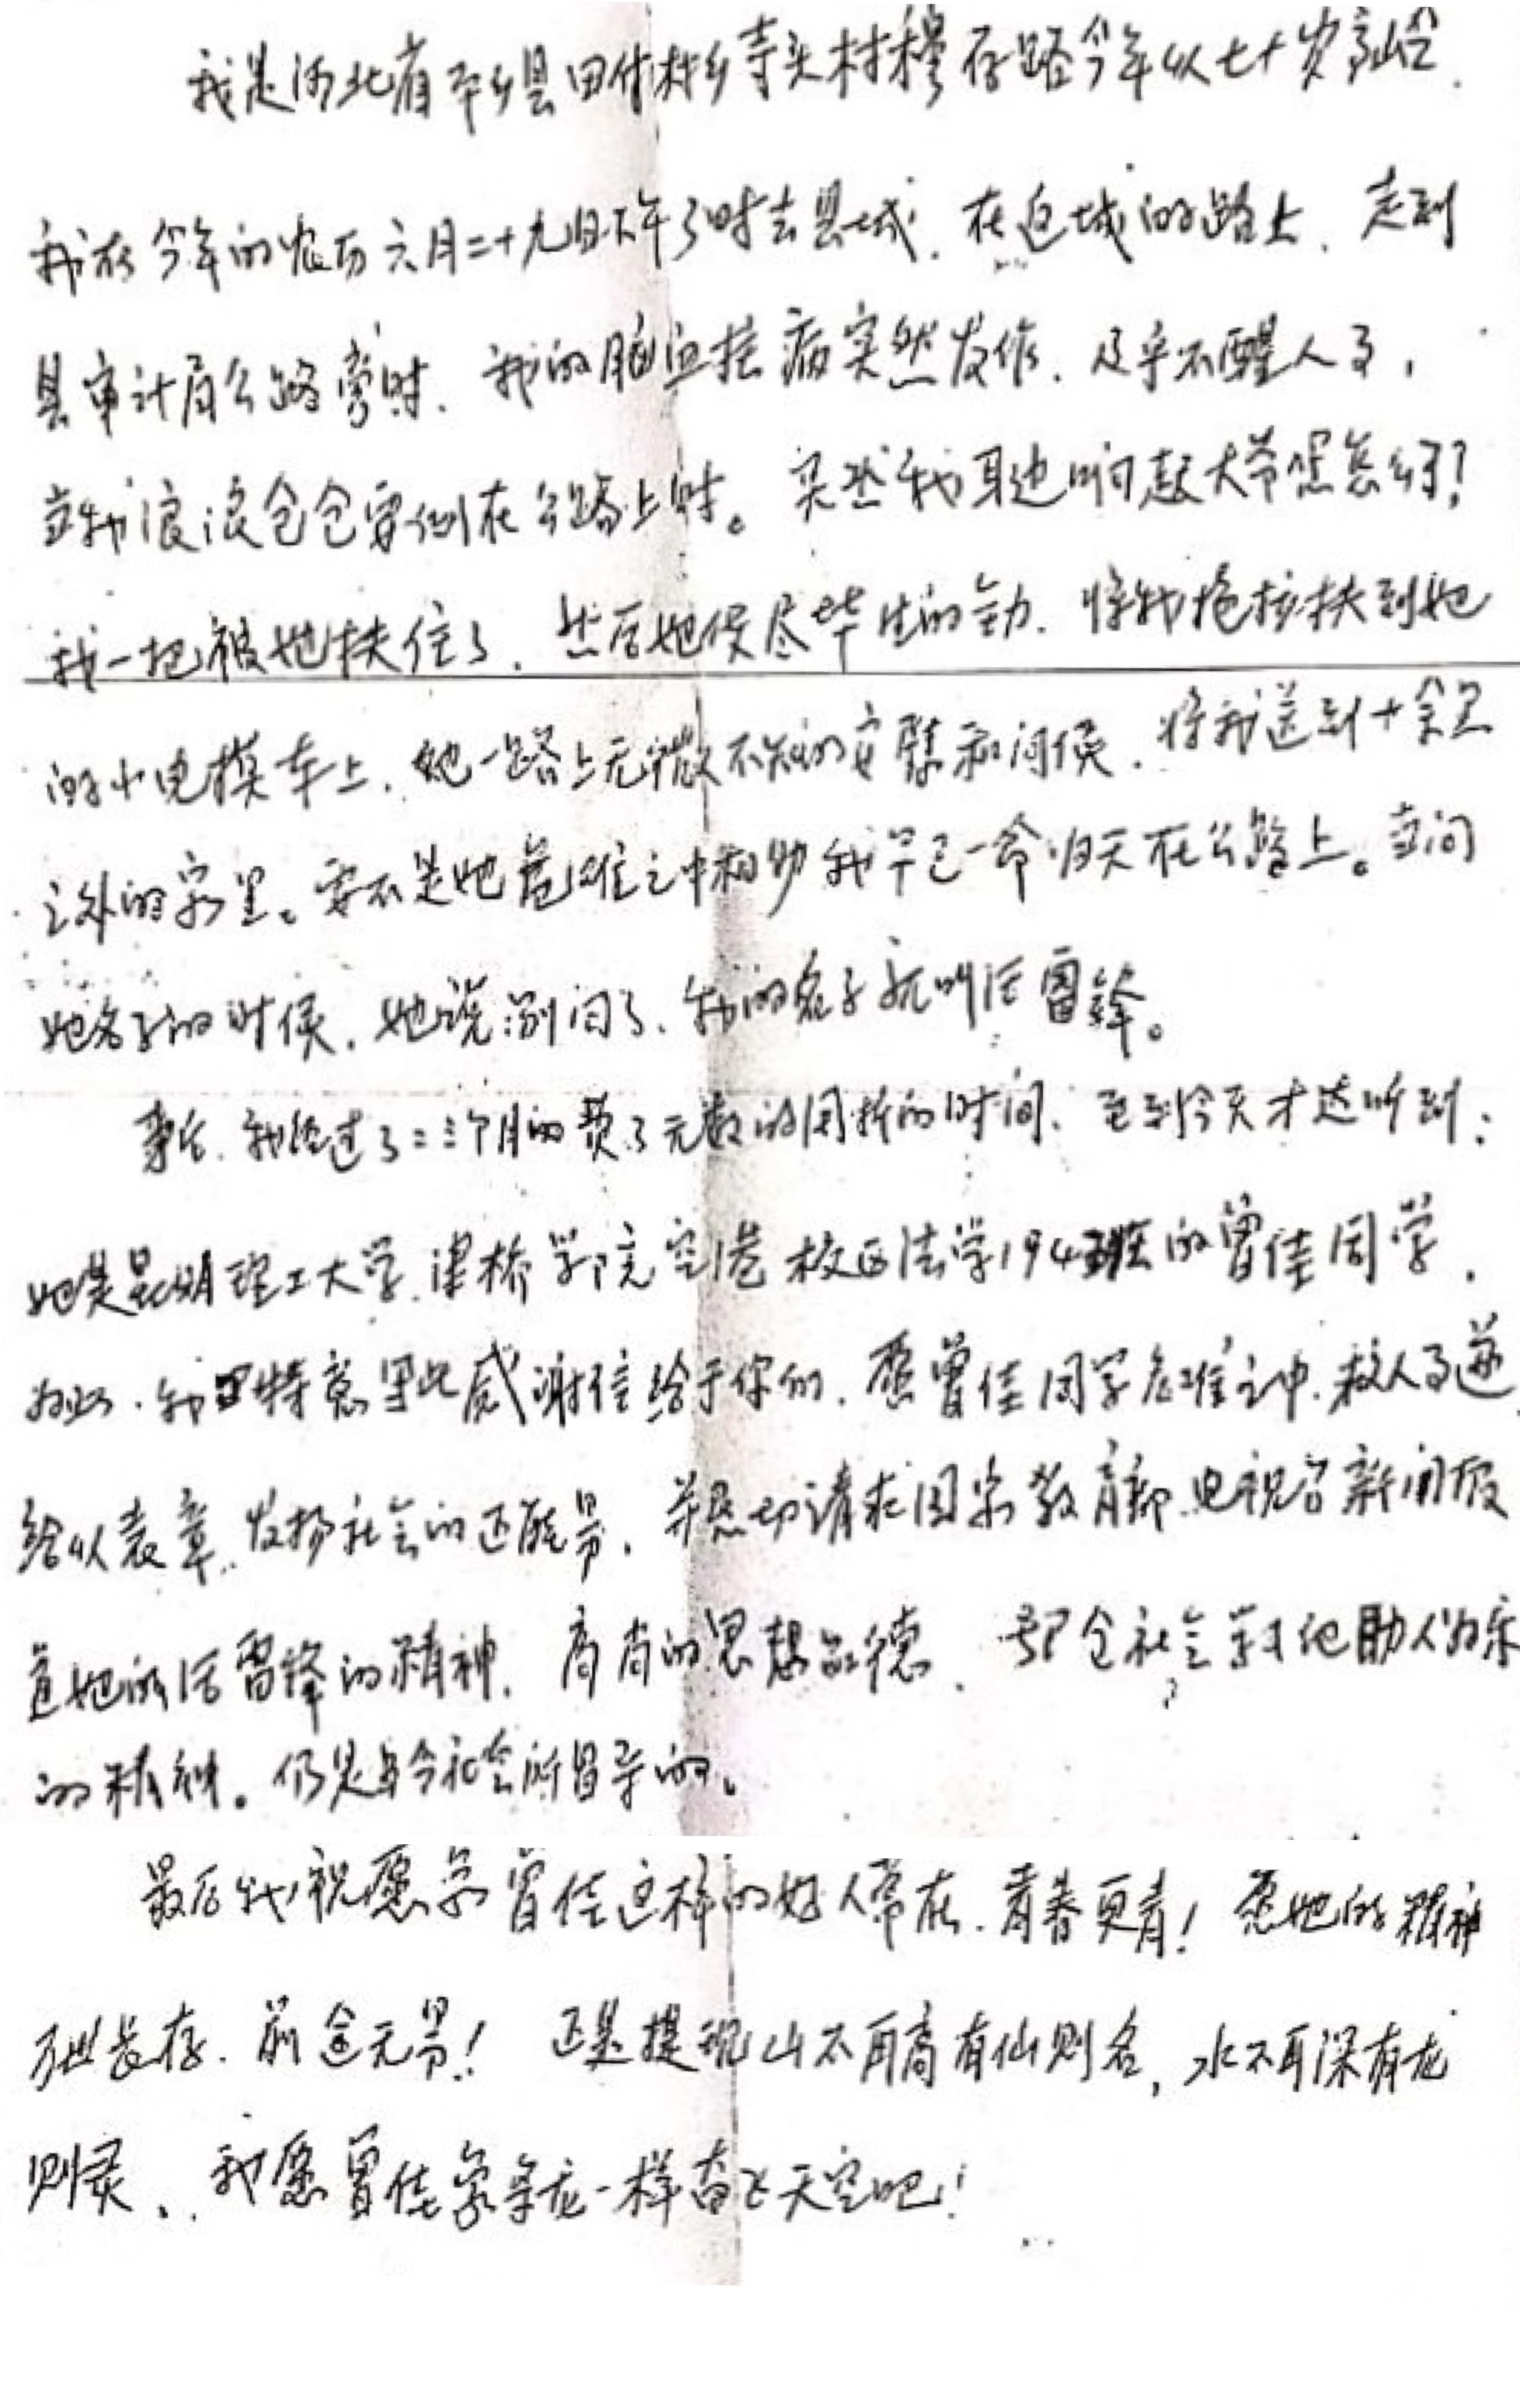 我是河北省平乡县田付村乡寺头村穆存路今年以七十岁高令.
我在今年的农历六月二十九日下午了时去县城.在返城的路上.走到
县审计局公路旁时.我的脑血拴病突然发作.及乎不醒人事,
当我浪浪仓仓要倒在公路上时。突然我身边响起大爷您怎么了?
我一把被她扶住了.然后她使尽毕生的劲.将我搀扶到她
的小电摸车上.她一路上无微不知的安慰和问候.将我送到十余里
之外的家里。要不是她危难之中相助我早已一命归天在公路上。当问
她名子的时候.她说别问了.我的名子就叫活雷锋。
事后.我经过了二三个月的费了无数的周折的时间.至到今天才达听到:
她是昆明理工大学.津桥学院空港校区法学194班的曾佳同学.
为此.我特意写此感谢信给于你们.愿曾佳同学危难之中.救人事迹
给以表章.发扬社会的正能量.并恳切请求国家教育部.电视台新闻报
道她的活雷锋的精神.高尚的思想品德.号召全社会学习他助人为乐
的精神。仍是当今社会所昌导的。
最后我祝愿象曾佳这样的好人常在.青春更青!愿她的精神
万世长存.前途无量!正是提现山不再高有仙则名,水不再深有龙
则灵..我愿曾佳象条龙一样奋飞天空吧!